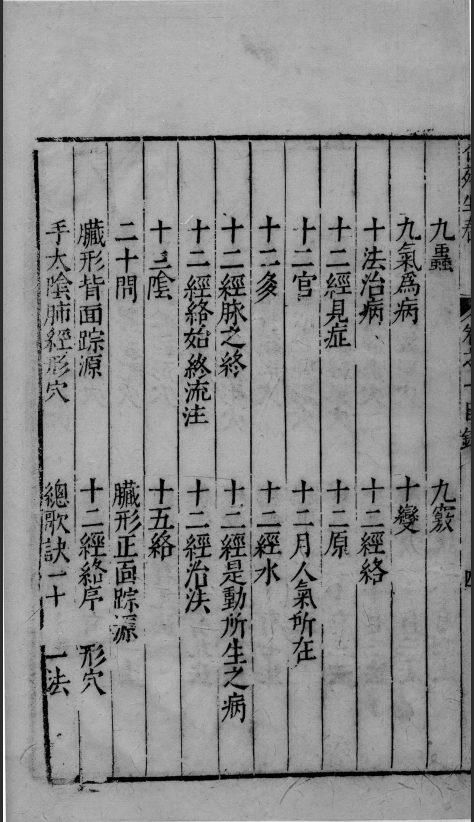 目錄 四
九蟲 九竅
九氣爲病 十變
十法治病 十二經絡
十二經見症 十二原
十二官 十二月人氣所在
十二多 十二經水
十二經脉之終 十二經是動所生之病
十二經絡始終流注 十二經治法
十五絡
二十問 臟形正面踪源
臟形背面踪源 十二經絡序 形穴
手太陰肺經形穴 總歌訣一十 一法